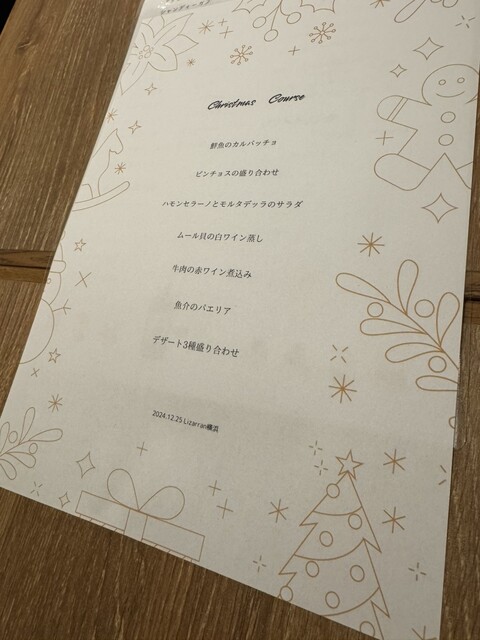 Christmas Course
鮮魚のカルパッチョ
ピンチョスの盛り合わせ
ハモンセラーノとモルタデッラのサラダ
ムール貝の白ワイン蒸し
牛肉の赤ワイン煮込み
魚介のパエリア
デザート3種盛り合わせ
2024.12.25 Lizarran横浜